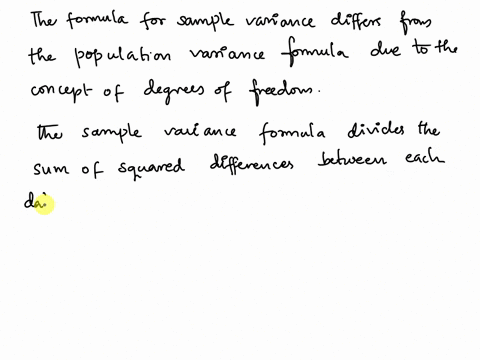 The formula for sample variance differs from
the population variance formula due to the
concept of degrees of freedom.
The sample variance formula divides the
sum of squared differences between each
dai